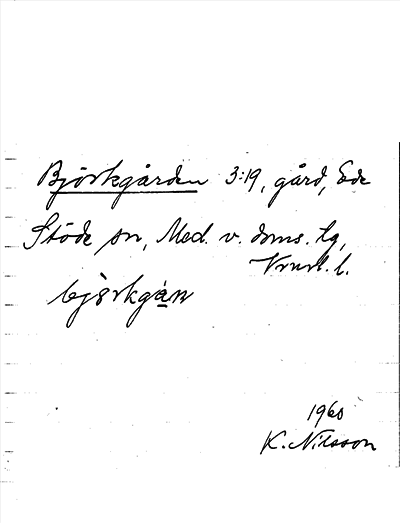 Björkgården 3:19, gård, Ede
Stöde sn, Med. v. doms. lg,
Vnrl. l.
bjò̀rkgán
1960
K. Nilsson